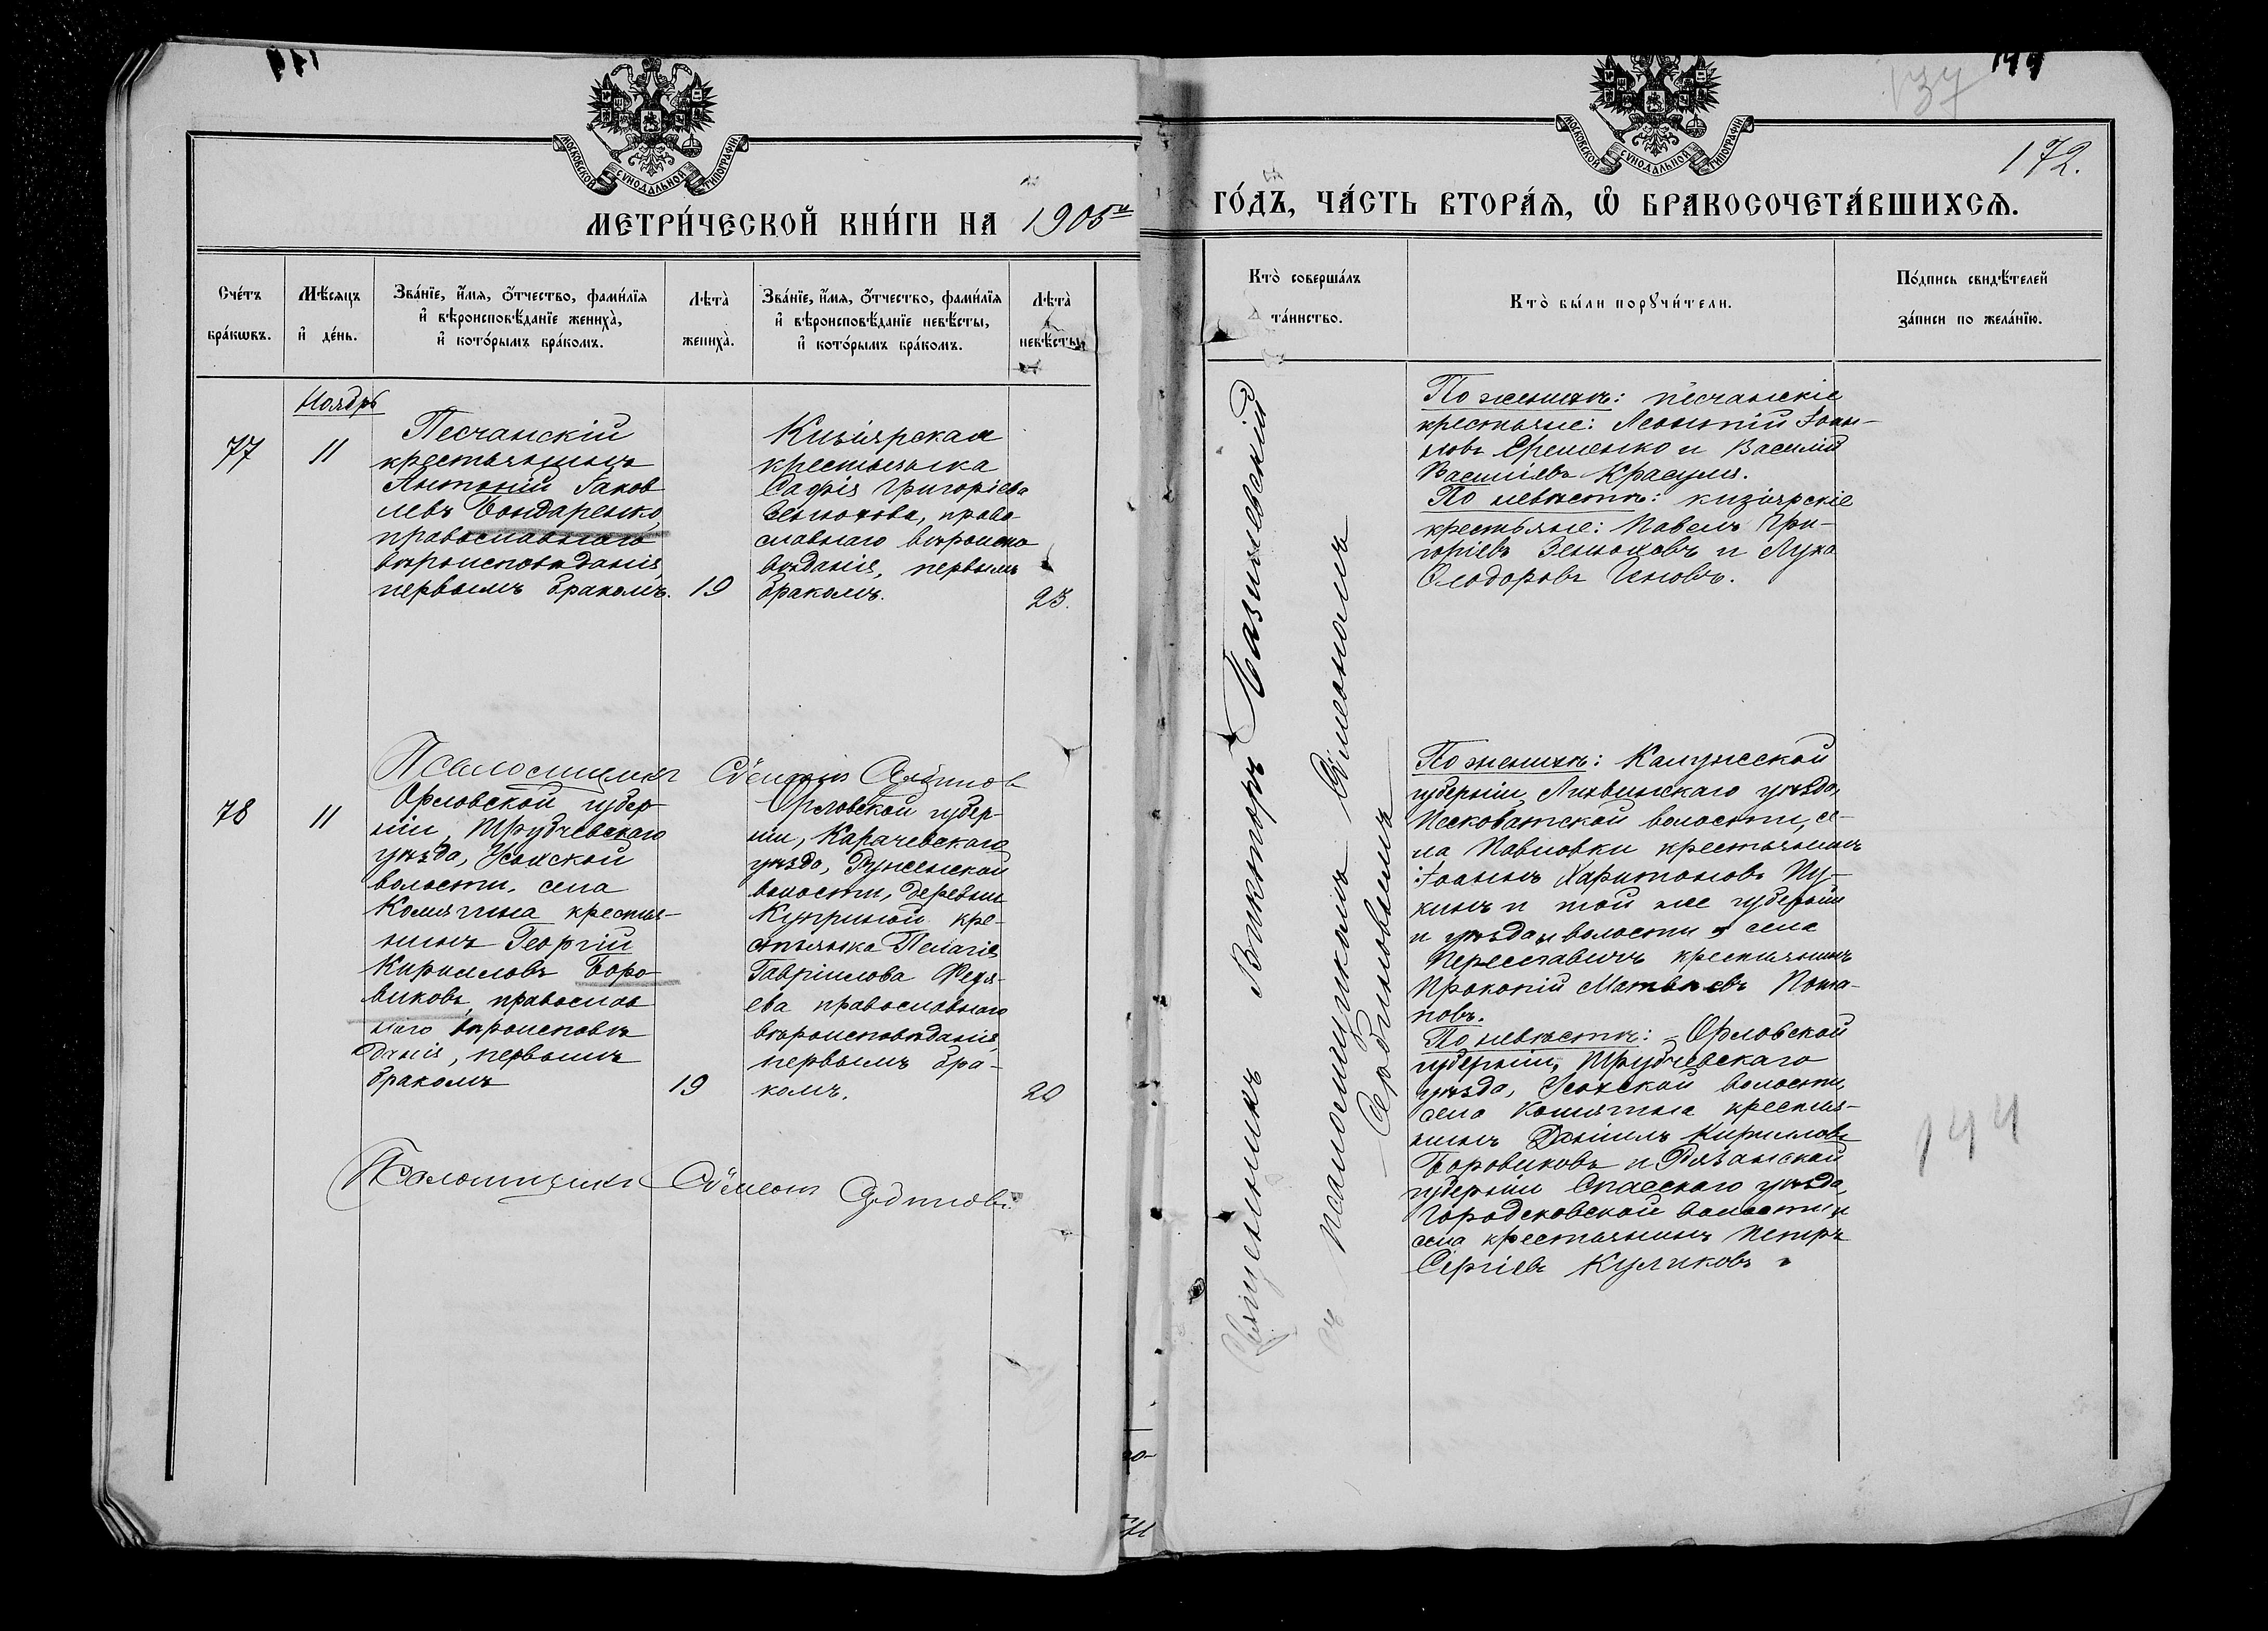 144
МОСКОВСКОЙ СѴНОДАЛЬНОЙ ТИПОГРАФІИ
МЕТРИ́ЧЕСКОЙ КНИ́ГИ НА 1905й
Сче́тъ бра́кѡвъ.
Мѣ́сяцъ и҆ де́нь.
Зва́нїе, и҆́мѧ, ѻ҆́тчество, фами́лїѧ
и҆ вѣроисповѣ́данїе жениха̀,
и҆ кото́рымъ бра́комъ.
Лѣта̀
жениха̀.
Зва́нїе, и҆́мѧ, ѻ҆́тчество, фами́лїѧ
и҆ вѣроисповѣ́данїе невѣ́сты,
и҆ кото́рымъ бра́комъ.
Лѣта̀
невѣ́сты.
Ноябрь
77
11
Песчанскій
крестьянинъ
Антоній Іаков
левъ Бондаренко,
православнаго
вѣроисповѣданія,
первымъ бракомъ.
19
Кизіярская
крестьянка
Софія Григоріева
Зенюкова, право
славнаго вѣроиспо
вѣданія, первымъ
бракомъ.
23.
Псаломщикъ Сѵмеонъ
78
11
Орловской губер-
ніи, Трубчевскаго
уѣзда, Усохской
волости, села
Комягина крестья-
нинъ Георгій
Кирилловъ Боро-
виковъ, православ
наго вѣроисповѣ
данія, первымъ
бракомъ
19
Орловской губер-
ніи, Карачевскаго
уѣзда, Руженской
волости, деревни
кре-
стьянка Пелагія
Гавріилова Федя-
ева православнаго
вѣроисповѣданія,
первымъ бра-
комъ.
20
Псаломщикъ Сѵмеонъ
144
137
172.
МОСКОВСКОЙ СѴНОДАЛЬНОЙ ТИПОГРАФІИ
ГО́ДЪ, ЧА́СТЬ ВТОРА́Ѧ, Ѽ БРАКОСОЧЕТА́ВШИХСѦ.
Кто̀ соверша́лъ
та́инство.
Кто̀ бы́ли порꙋчи́тели.
По́дпись свидѣ́телей
за́писи по жела́нїю.
Священникъ Викторъ
съ псаломщикомъ Сѵмеономъ
По женихѣ: песчанскіе
крестьяне: Леонтій Іоан-
новъ Еременко и Василій
Василіевъ Красуля.
По невѣстѣ: кизіярскіе
крестьяне: Павелъ Гри-
горіевъ Зенюковъ и Лука
Ѳеодоровъ
По женихѣ: Калужской
губерніи, Лихвинскаго уѣзда,
Песковатской волости, се-
ла Павловки крестьянинъ
Іоаннъ Харитоновъ Пу-
кинъ и той же губерніи
и уѣзда и волости села
Переславичъ крестьянинъ
Прокопій Матвѣевъ Пота-
повъ.
По невѣстѣ: Орловской
губерніи, Трубчевскаго
уѣзда, Усохской волости,
села Комягина крестья-
нинъ Даніилъ Кирилловъ
Боровиковъ и Рязанской
губерніи Спасскаго уѣзда,
Городсковской волости и
села крестьянинъ Петръ
Сергіевъ Куликовъ
144